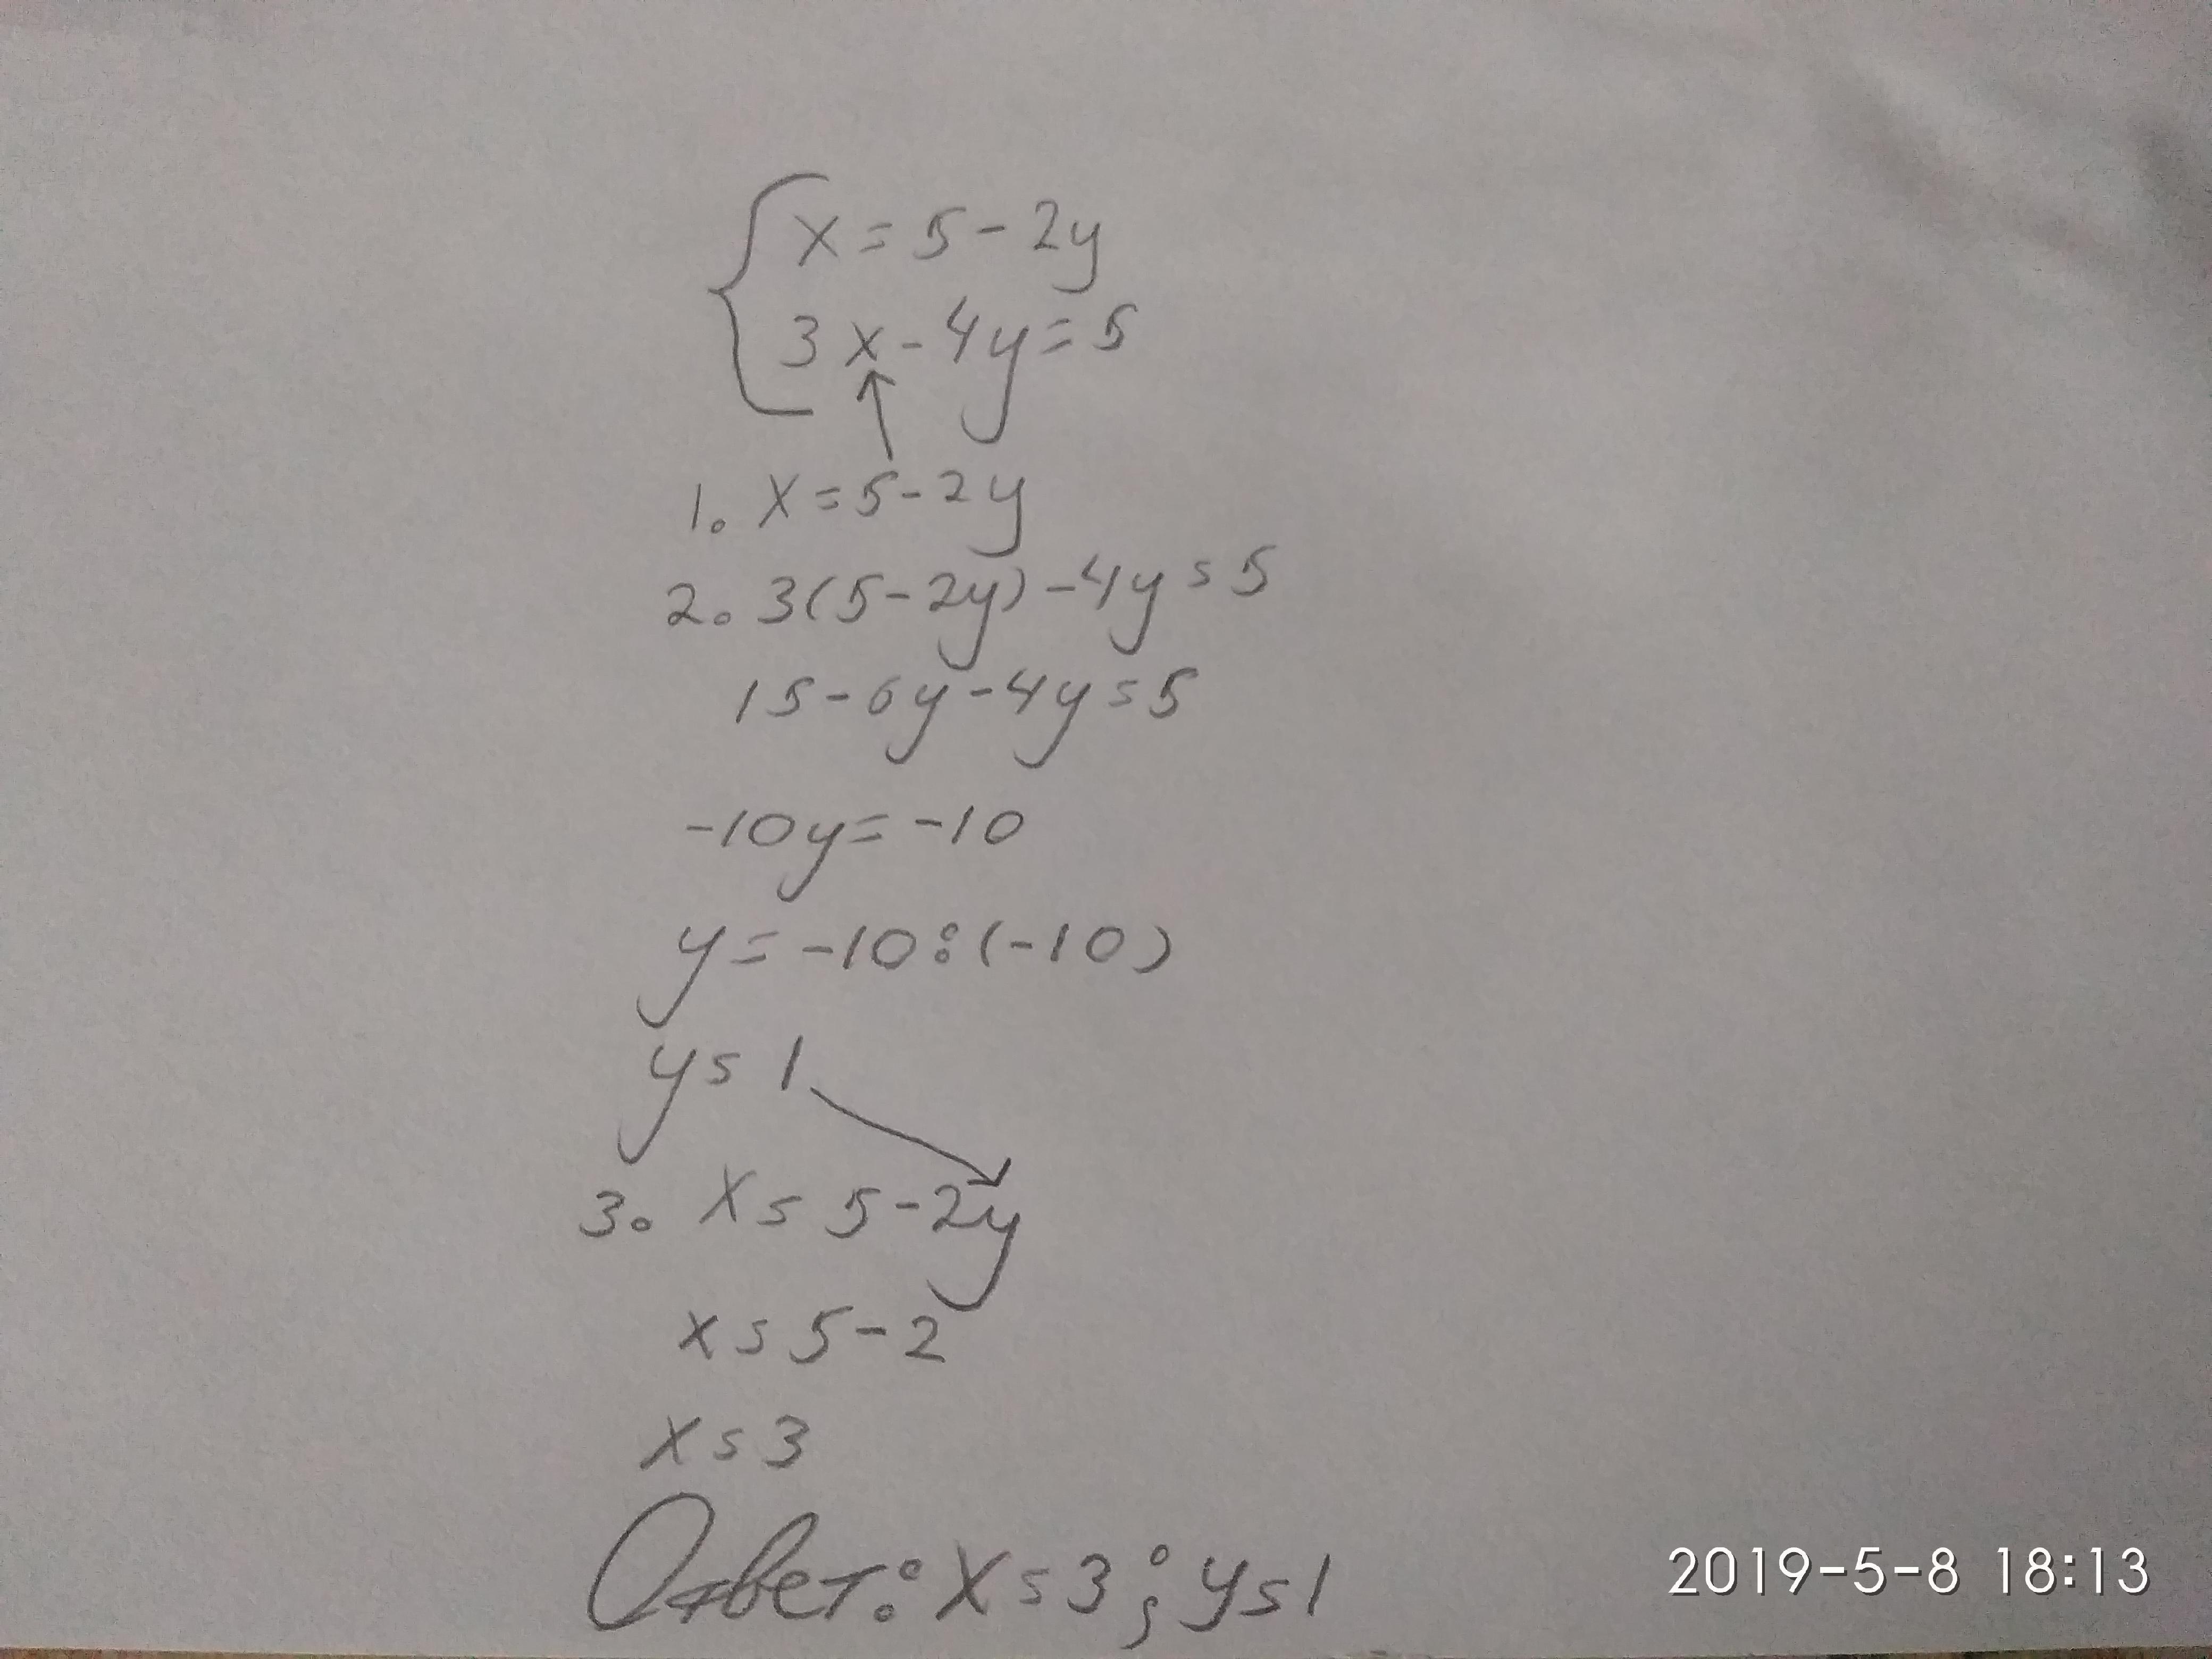 x = 5 - 2y
3x - 4y = 5
1. x = 5 - 2y
2. 3(5 - 2y) - 4y = 5
15 - 6y - 4y = 5
-10y = -10
y = -10 : (-10)
y = 1
3. x = 5 - 2y
x = 5 - 2
x = 3
Ответ: x = 3; y = 1
2019-5-8 18:13